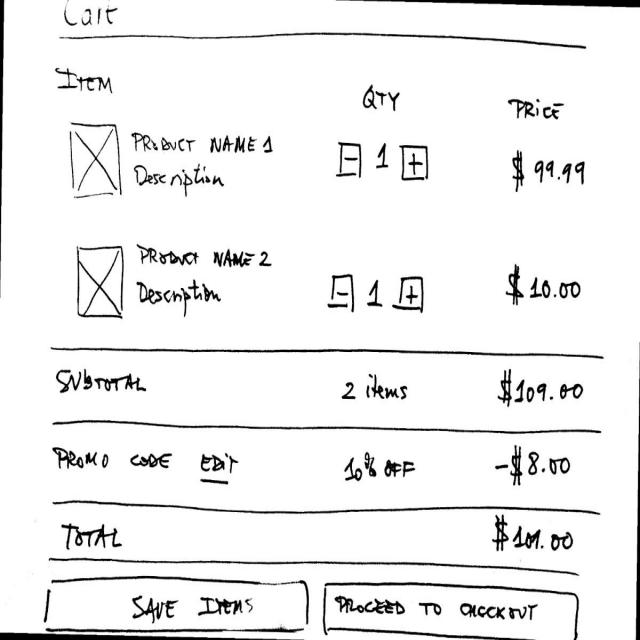 Cart
ITEM QTY PRICE
PRODUCT NAME 1
Description
- 1 +
$ 99.99
PRODUCT NAME 2
Description
- 1 +
$ 10.00
SUBTOTAL 2 items $109.00
PROMO CODE EDIT 10% OFF -$8.00
TOTAL $101.00
SAVE ITEMS PROCEED TO CHECKOUT